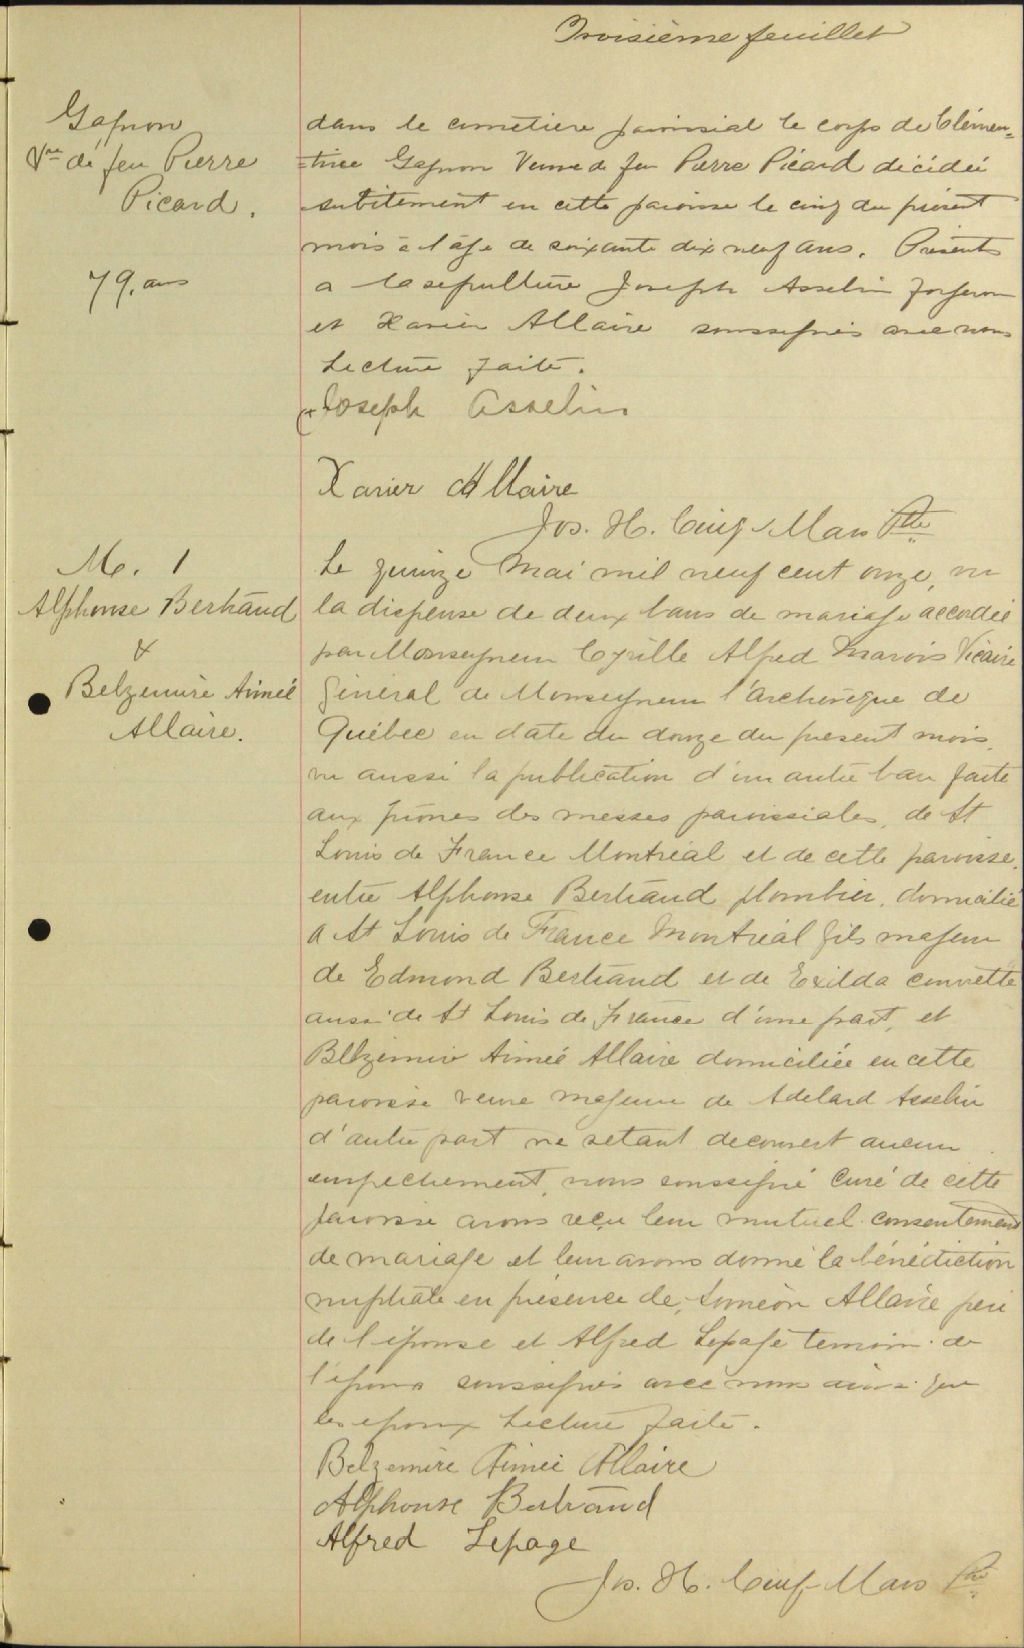 Troisième feuillet
Gagnon
Vve de feu Pierre
Picard.
79. ans
dans le cimetière paroissial le corps de Clémen=
=tine Gagnon Veuve de feu Pierre Picard décédée
subitement en cette paroisse le cinq du présent
mois à l'âge de soixante dix neuf ans. Présents
a la sépulture Joseph Asselin forgeron
et Xavier Allaire soussignés avec nous
Lecture faite.
Joseph Asselin
Xavier Allaire
Jos. H. Cinq-Mars Ptre
M. 1
Alphonse Bertrand
&
Belzemire Aimée
Allaire.
Le quinze Mai mil neuf cent onze, vu
la dispense de deux bans de mariage accordée
par Monseigneur Cyrille Alfred Marois Vicaire
Général de Monseigneur l'archevêque de
Québec en date du douze du present mois,
vu aussi la publication d'un autre ban faite
aux prônes des messes paroissiales, de St
Louis de France Montréal et de cette paroisse,
entre Alphonse Bertrand plombier, domicilié
a St Louis de France Montréal fils majeur
de Edmond Bertrand et de Exilda
aussi de St Louis de France d'une part, et
Belzemire Aimée Allaire domiciliée en cette
paroisse veuve majeure de Adelard Asselin
d'autre part ne setant decouvert aucun
empechement, nous soussigné Curé de cette
paroisse avons reçu leur mutuel consentement
de mariage et leur avons donné la bénédiction
nuptiale en présence de, Siméon Allaire père
de l'épouse et Alfred Lepage temoin de
l'epoux soussignés avec nous ainsi que
les epoux Lecture faite.
Belzemire Aimée Allaire
Alphonse Bertrand
Alfred Lepage
Jos. H. Cinq-Mars Ptre